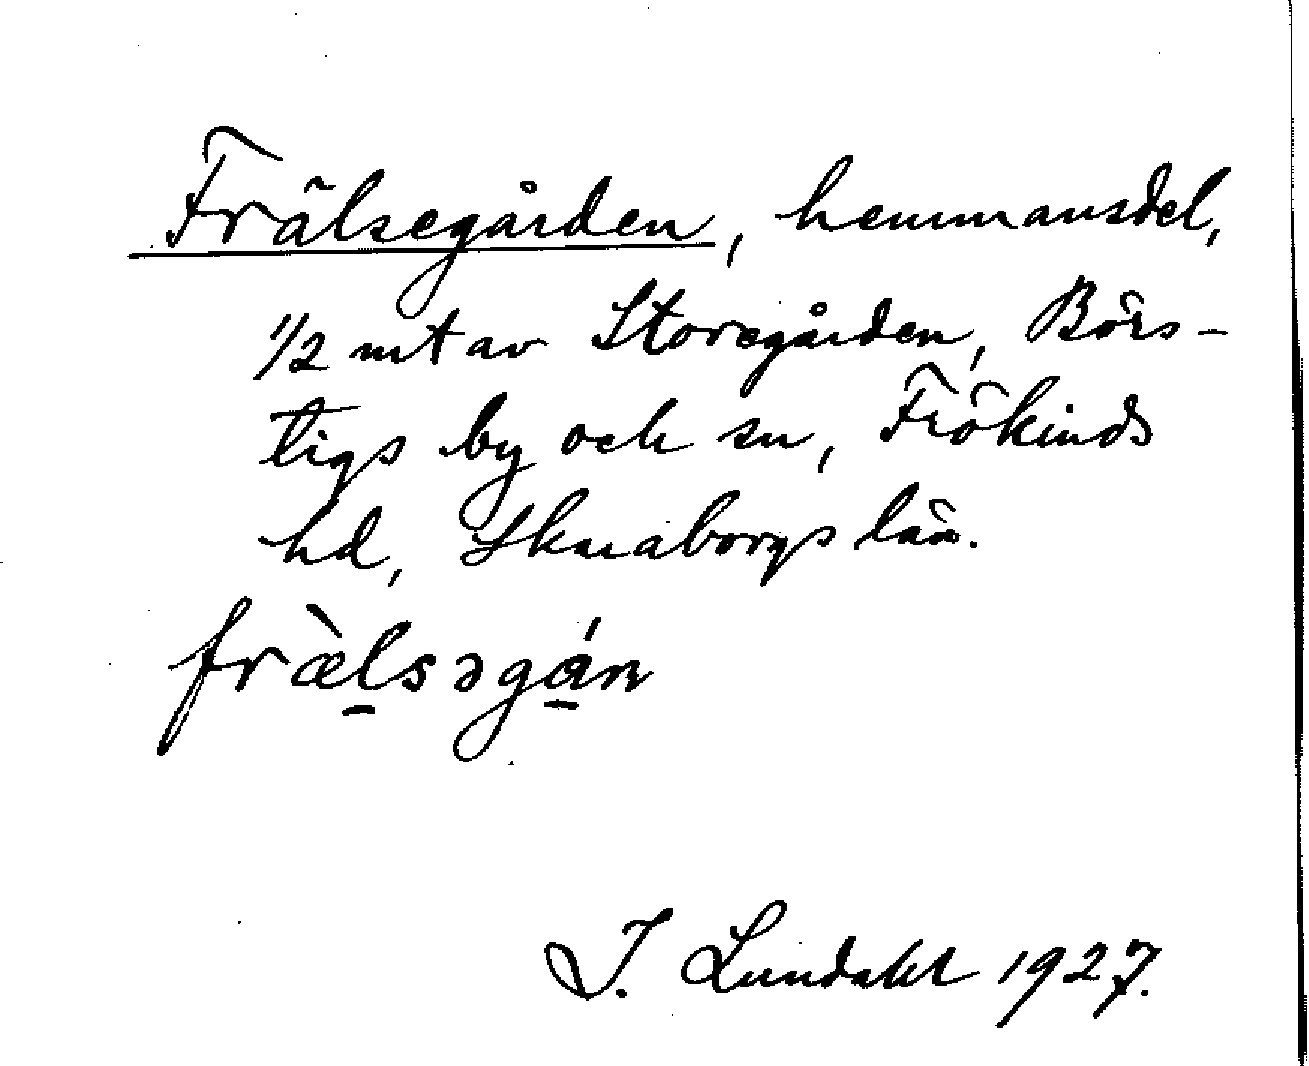 Frälsegården, hemmansdel,
1/2 mt av Storegården, Börs-
tigs by och sn, Frökinds
hd, Skaraborgs län.
fræ̀l̠səgá̠n
I. Lundahl 1927.